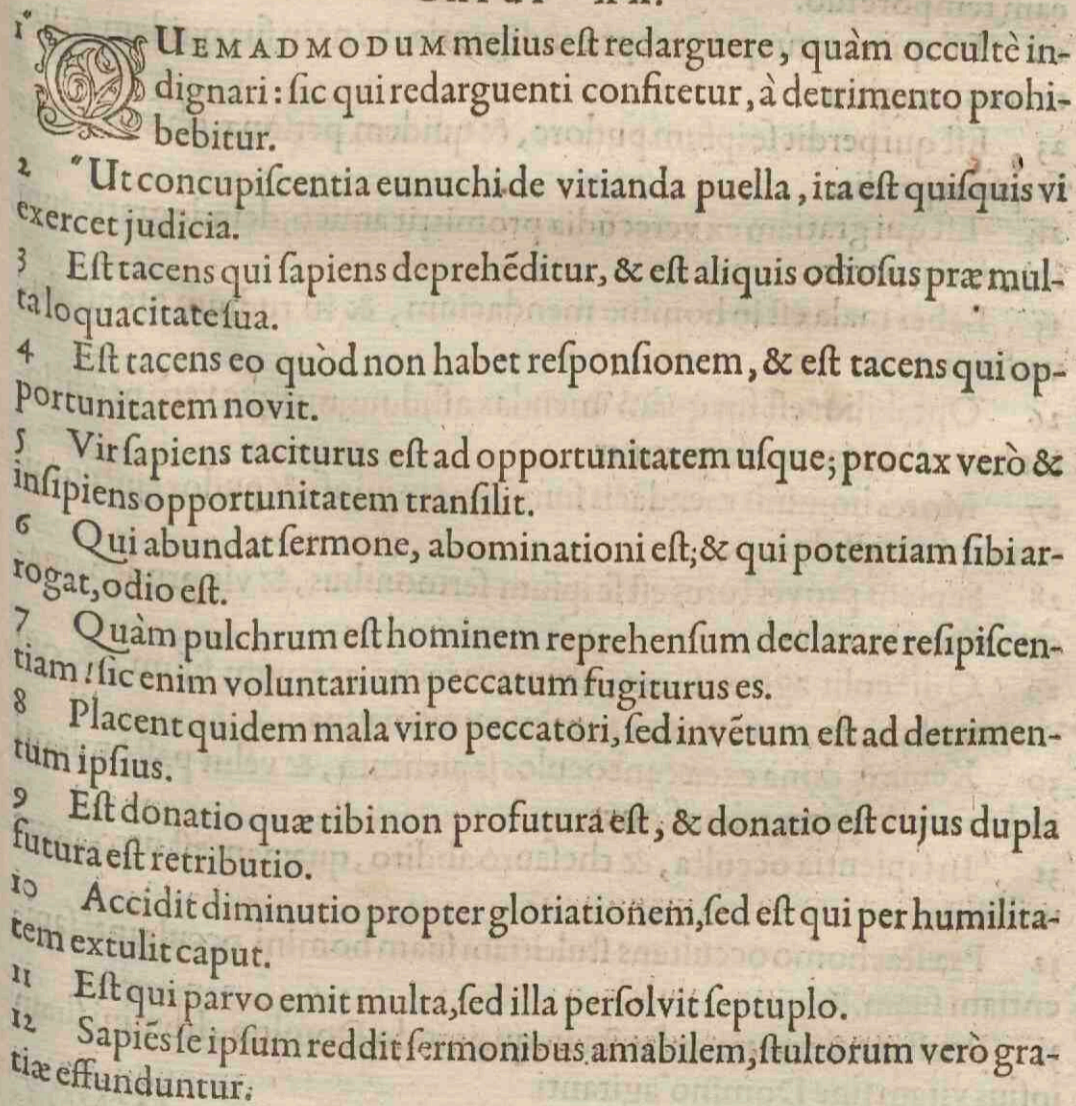 1" QUEMADMODUM melius eſt redarguere, quàm occultè in-
dignari: ſic qui redarguenti confitetur, à detrimento prohi-
bebitur.
2 "Ut concupiſcentia eunuchi de vitianda puella, ita eſt quiſquis vi
exercet judicia.
3 Eſt tacens qui ſapiens deprehẽditur, & eſt aliquis odioſus præ mul-
ta loquacitate ſua.
4 Eſt tacens eo quòd non habet reſponſionem, & eſt tacens qui op-
portunitatem novit.
5 Vir ſapiens taciturus eſt ad opportunitatem uſque; procax verò &
inſipiens opportunitatem tranſilit.
6 Qui abundat ſermone, abominationi eſt; & qui potentiam ſibi ar-
rogat, odio eſt.
7 Quàm pulchrum eſt hominem reprehenſum declarare reſipiſcen-
tiam! ſic enim voluntarium peccatum fugiturus es.
8 Placent quidem mala viro peccatori, ſed invẽtum eſt ad detrimen-
tum ipſius.
9 Eſt donatio quæ tibi non profutura eſt, & donatio eſt cujus dupla
futura eſt retributio.
10 Accidit diminutio propter gloriationem, ſed eſt qui per humilita-
tem extulit caput.
11 Eſt qui parvo emit multa, ſed illa perſolvit ſeptuplo.
12 Sapiẽs ſe ipſum reddit ſermonibus amabilem, ſtultorum verò gra-
tiæ effunduntur.